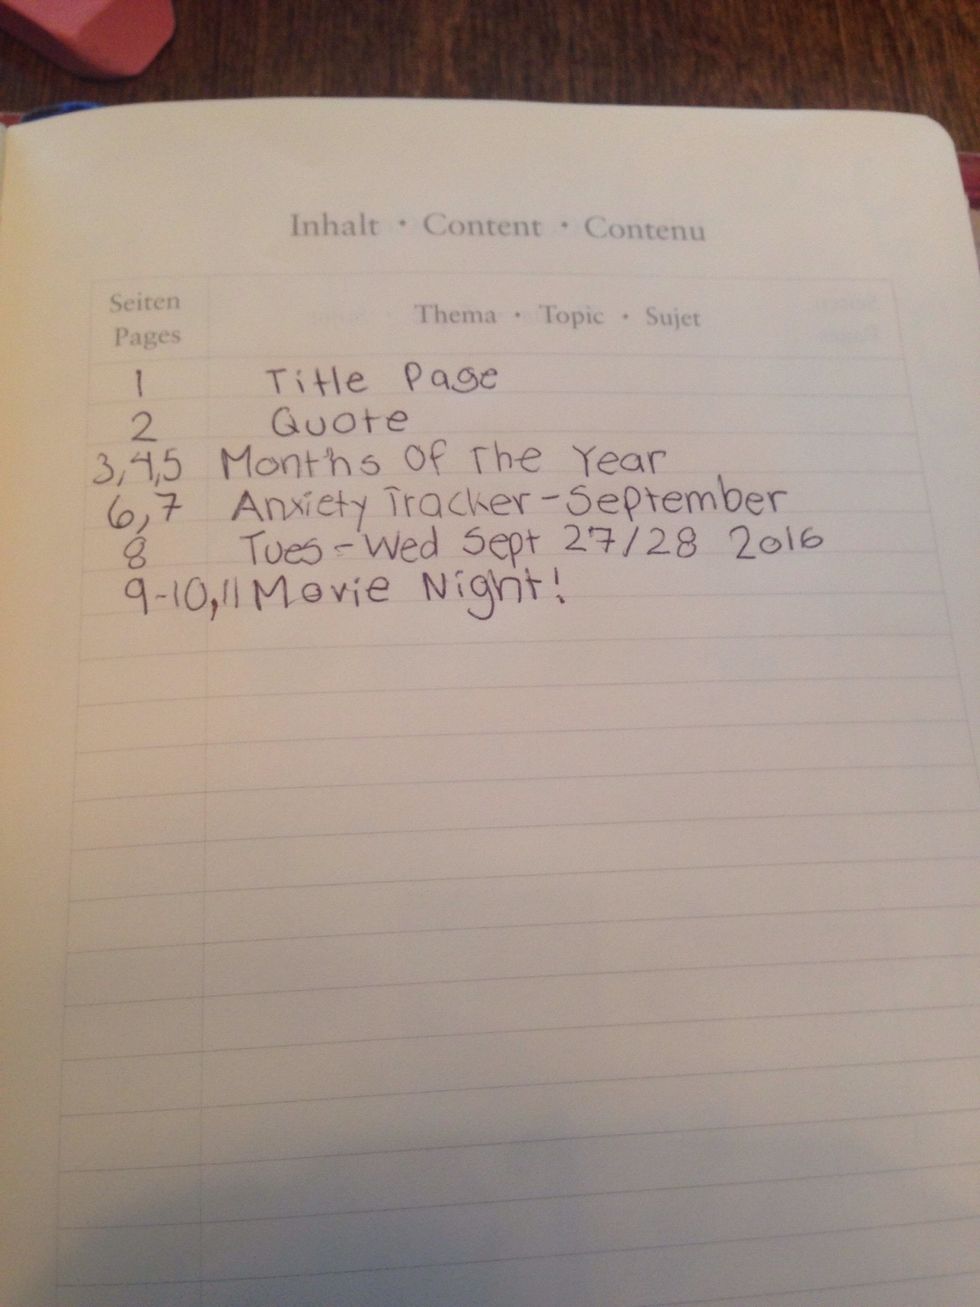 Inhalt · Content · Contenu
Seiten
Pages
Thema · Topic · Sujet
1 Title Page
2 Quote
3,4,5 Months Of The Year
6,7 Anxiety Tracker-September
8 Tues-Wed Sept 27/28 2016
9-10,11 Movie Night!